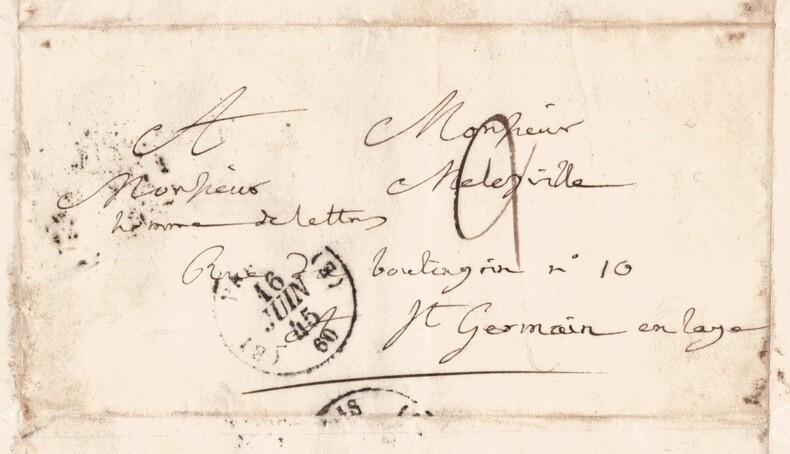 A Monsieur
Monsieur Melesville
homme de lettres
Rue du boulingrin n° 10
A St Germain en laye
2
16
JUIN
45
60
IS